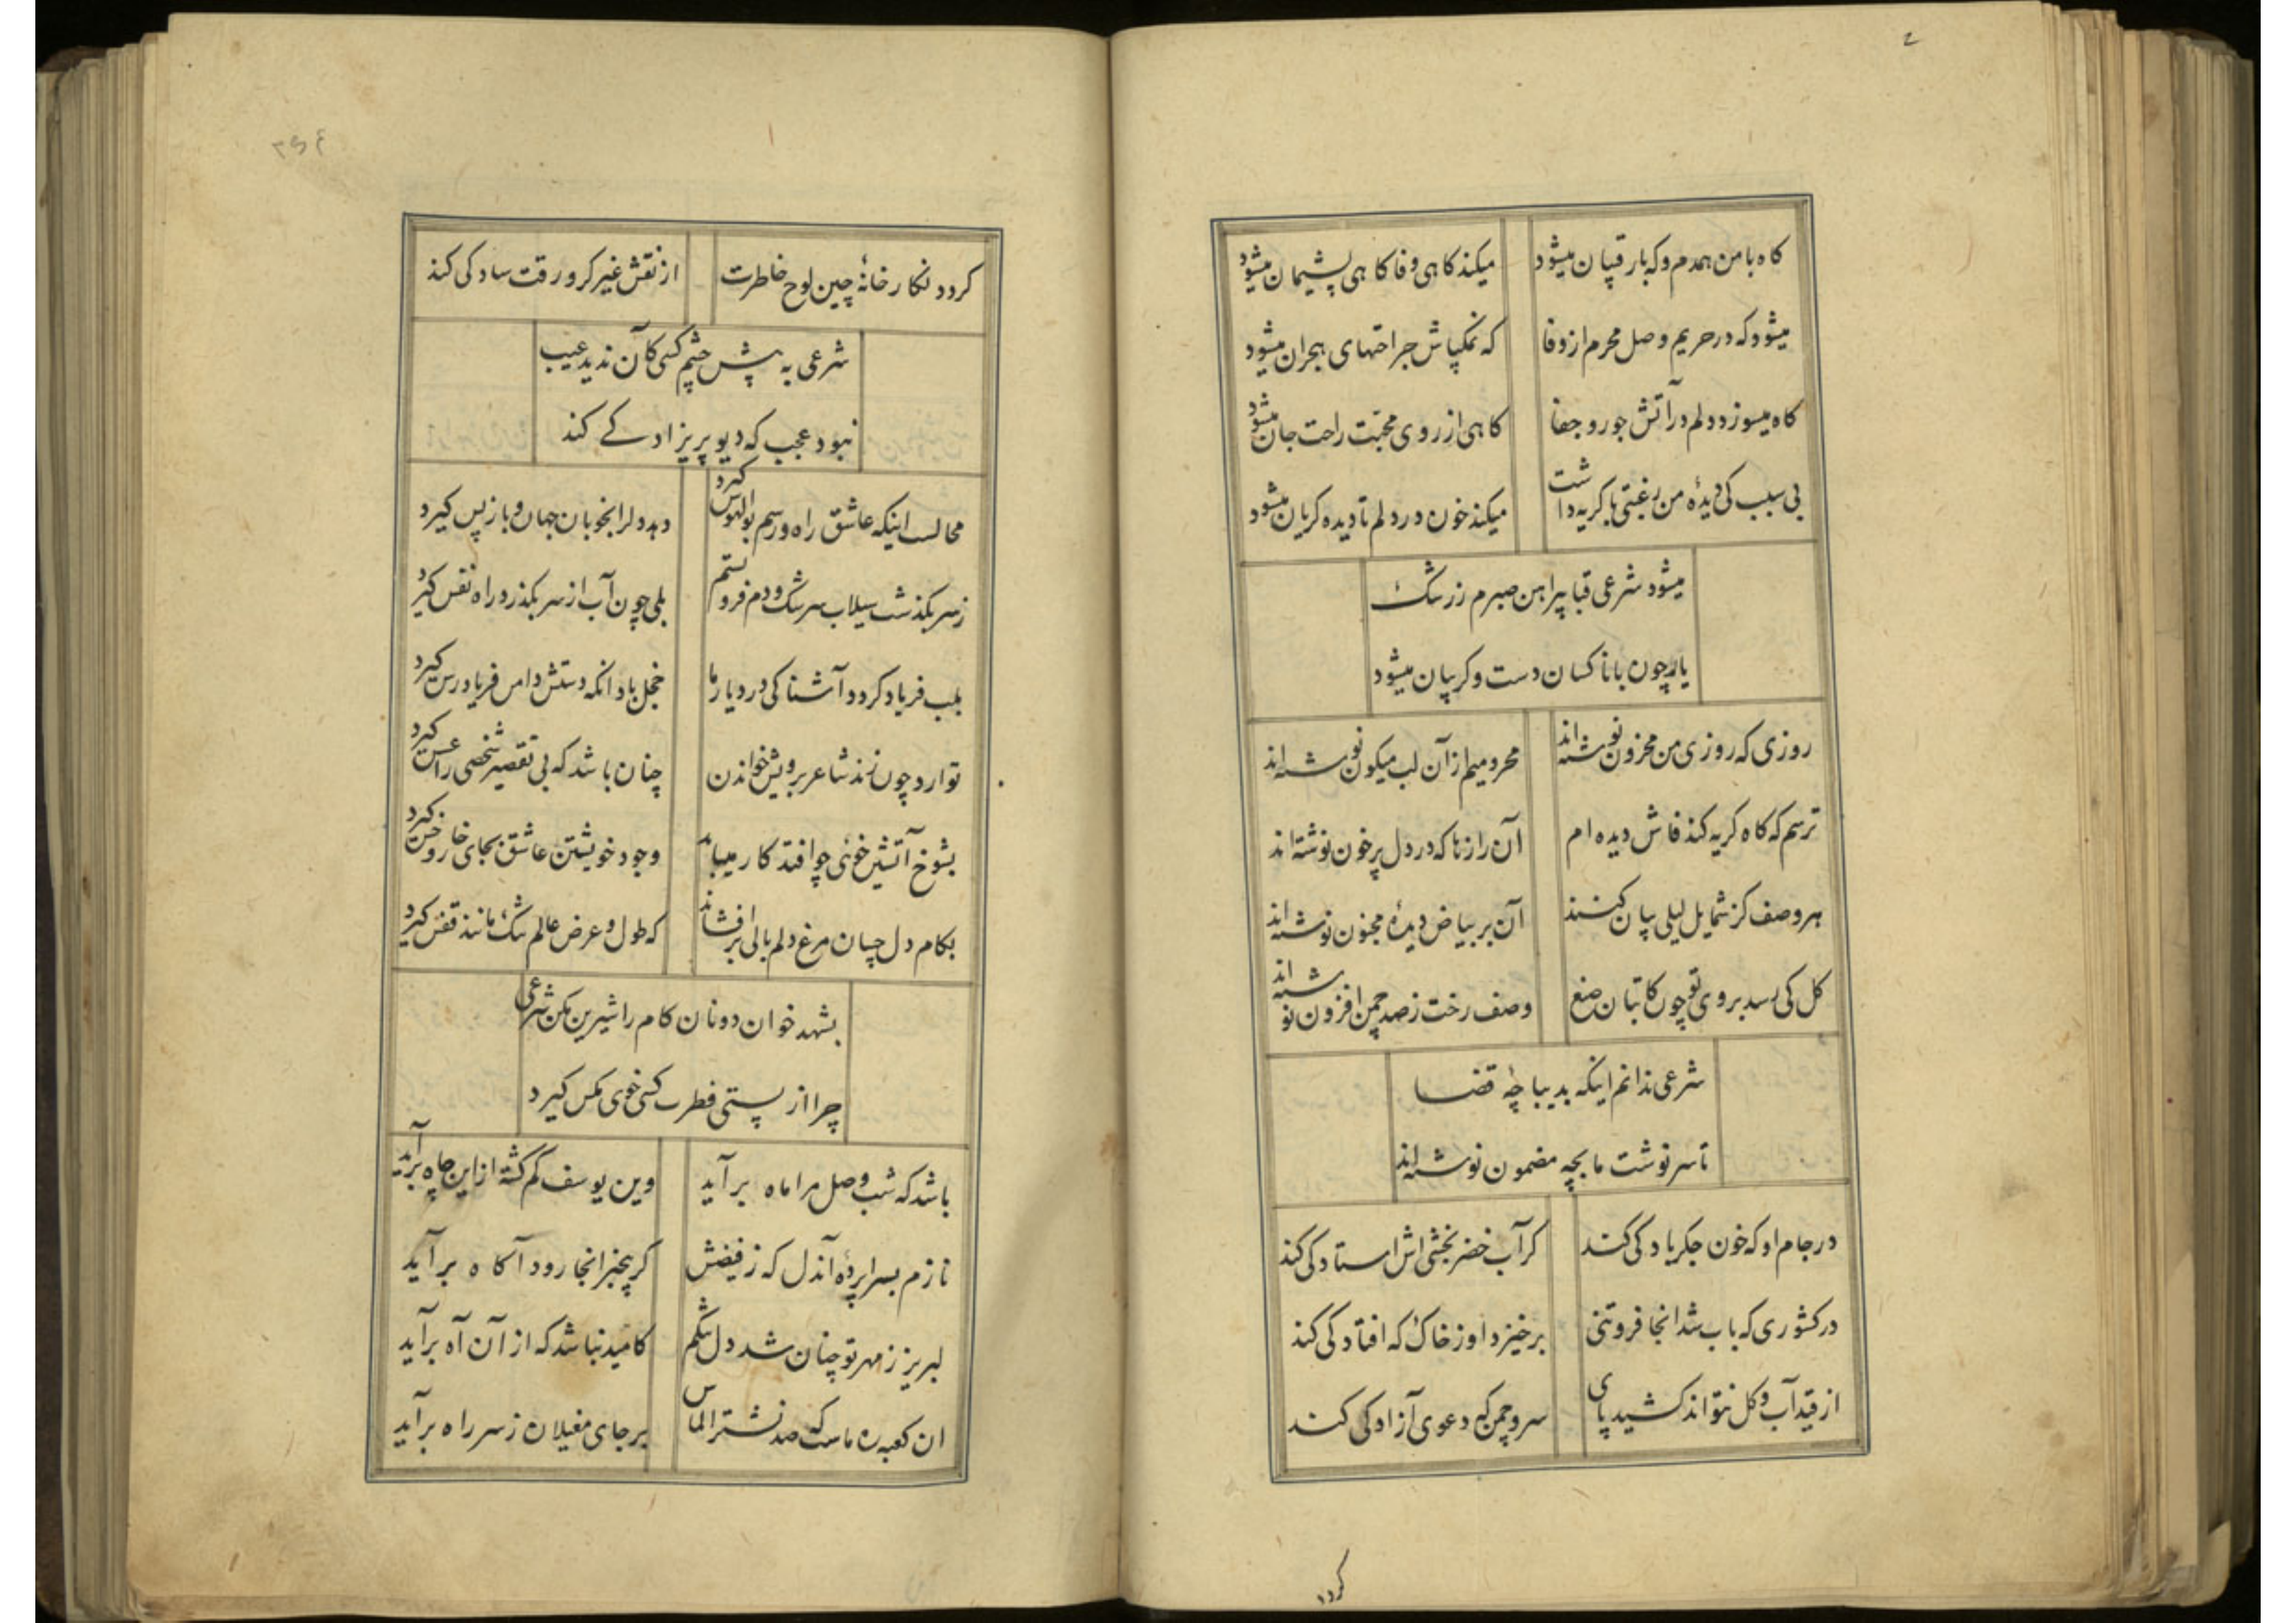 کاه با من همدم و که با رقیبان میشود میکند کاهی وفا کاهی پشیمان میشود
میشود که در حریم وصل محرم از وفا که نمکپاش جراحتهای هجران میشود
کاه میسوزد دلم در آتش جور و جفا کاهی از روی محبت راحت جان میشود
بی سبب کی دیدهٔ من رغبتی با کریه داشت میکند خون در دلم تا دیده کریان میشود
میشود شرعی قبا پیراهن صبرم ز رشک
یار چون با ناکسان دست و کریبان میشود
روزی که روزی من محزون نوشته‌اند محرومیم از آن لب میکون نوشته‌اند
ترسم که کاه کریه کند فاش دیده ام آن رازها که در دل پر خون نوشته اند
هر وصف کز شمایل لیلی بیان کنند آن بر بیاض دیدهٔ مجنون نوشته‌اند
کل کی رسد بروی تو چون کاتبان صنع وصف رخت ز صد چمن افزون نوشته‌اند
شرعی ندانم اینکه بدیباچهٔ قضا
تا سرنوشت ما بچه مضمون نوشته‌اند
در جام او که خون جکر یادکی کند کر آب خضر بخشی اش استادکی کند
در کشوری که باب شد انجا فروتنی برخیزد او ز خاک که افتادکی کند
از قید آب و کل نتواند کشید پای سرو چمن که دعوی آزادکی کند
کردد
۲
کردد نکارخانهٔ چین لوح خاطرت از نقش غیر کر ورقت سادکی کند
شرعی به پش چشم کسی کان ندید عیب
نبود عجب که دیو پریزادکے کند
محالست اینکه عاشق راه و رسم بوالهوس کیرد دهد دل را بخوبان جهان و باز پس کیرد
ز سر بکذشت سیلاب سرشک و دم فرو بستم بلی چون آب از سر بکذرد راه نفس کیرد
بلب فریاد کردد آشنا کی در دیار ما خجل باد انکه دستش دامن فریادرس کیرد
توارد چون زند شاعر برویش خواندن چنان باشد که بی تقصیر شخصی را عسس کیرد
بشوخ آتشین خوئی چو افتد کار میباید وجود خویشتن عاشق بجای خار و خس کیرد
بکام دل چسان مرغ دلم بالی برافشاند که طول و عرض عالم تنک مانند قفس کیرد
بشهد خوان دونان کام را شیرین مکن شرعی
چرا از پستی فطرت کسی خوی مکس کیرد
باشد که شب وصل مرا ماه برآید وین یوسف کم کشته از این چاه برآید
نازم بسراپردهٔ آندل که ز فیضش کر بیخبر انجا رود آکاه برآید
لبریز ز مهر تو چنان شد دل تنکم کامید نباشد که از آن آه برآید
ان کعبه ره ماست که صد نشتر الماس بر جای مغیلان ز سر راه برآید